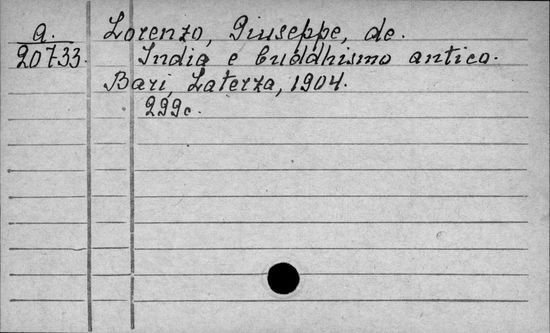 a.
20733.
Lorenzo, Giuseppe, de.
India e buddhismo antico.
Bari, Laterza, 1904.
299c.